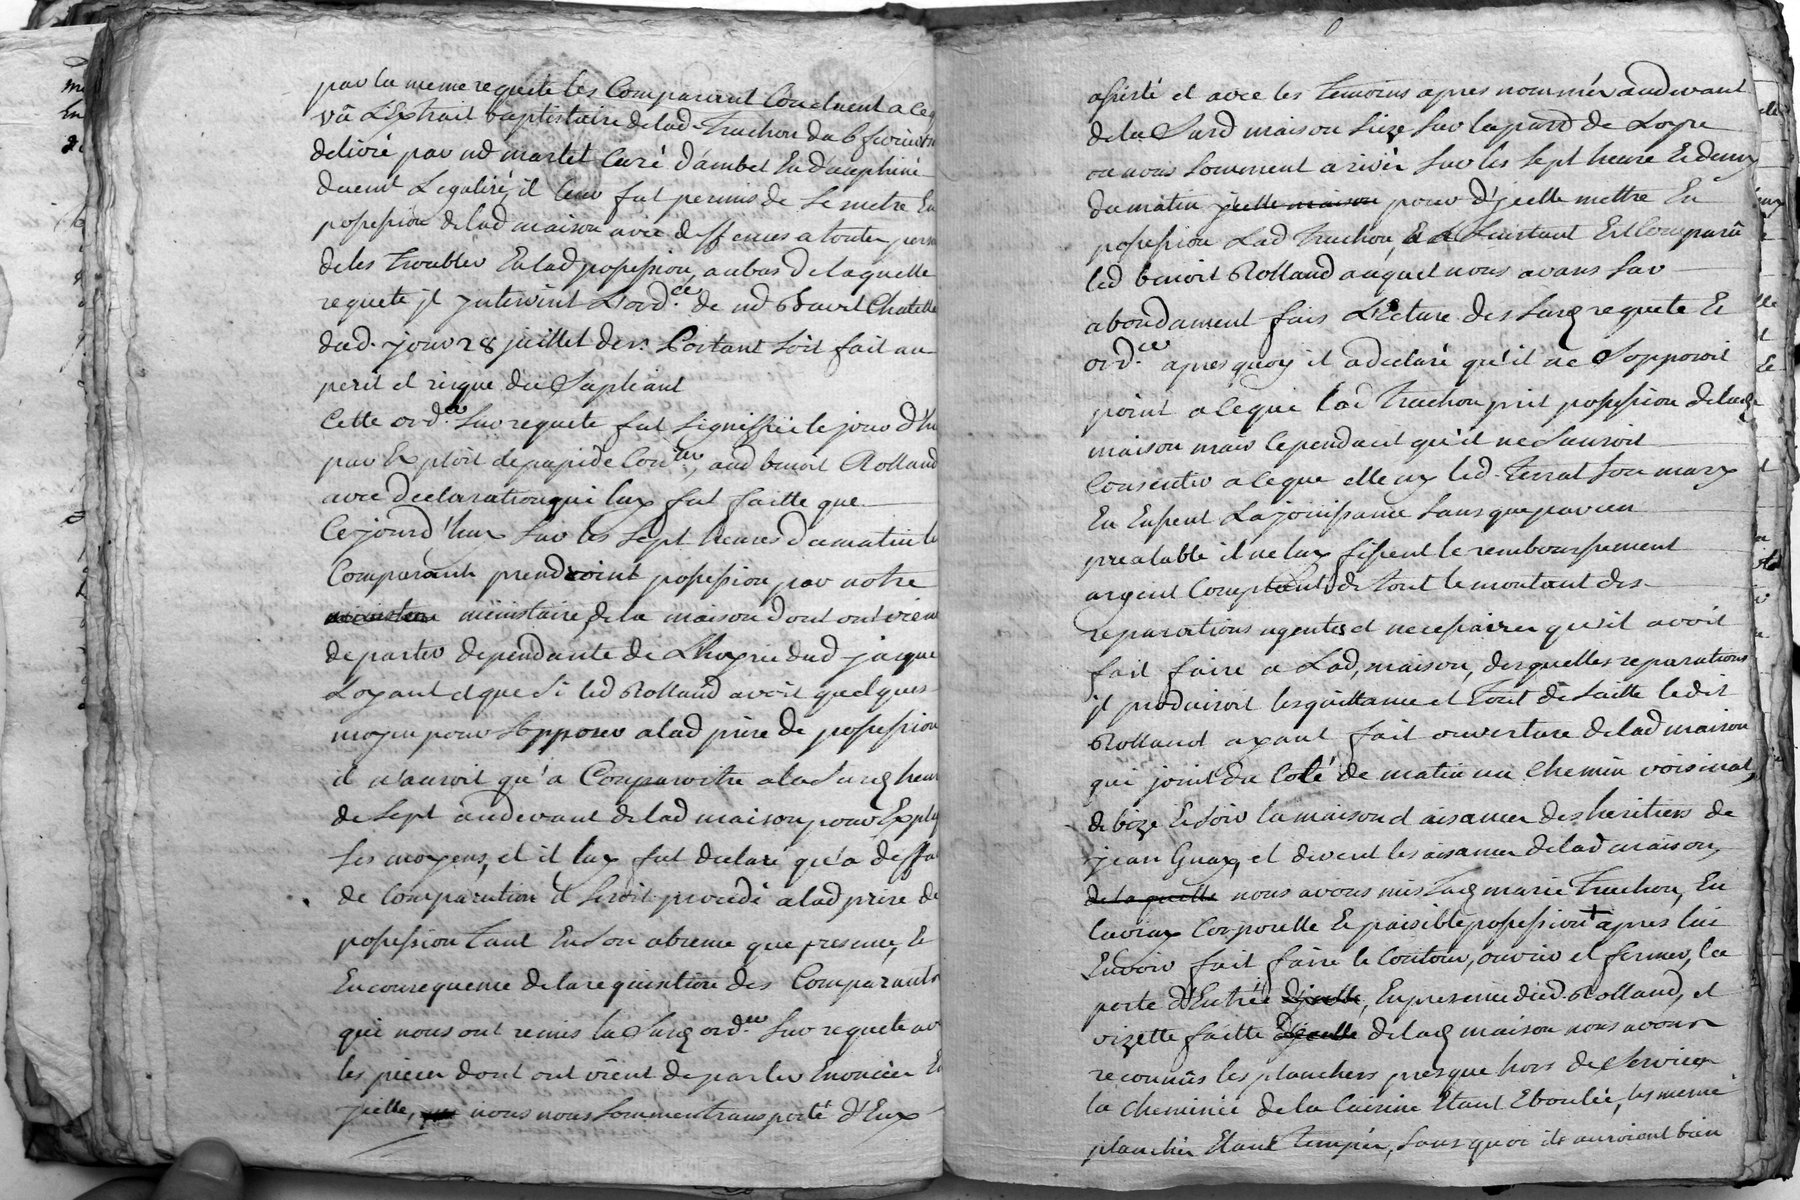 par la meme requete les Comparant Concluent a ce q
vû L'Extrait baptistaire delad. Truchon du 6 fevrier
delivré par md martel Curé d'ambel En d'auphiné
duemt Legalizé, il leur fut permis de se metre En
posession delad maison avec deffences a toutes perso
de les troubler En lad posession, au bas de laquelle
requete jl jntervint L'ord.ce de md Chatelle
dud. jour 28 juillet der. Portant soit fait au
peril et risque du Supliant
Cette ord.ce sur requete fut signiffiée le jour d'hi
par Exploit depapide Con.er, aud benoit Rolland
avec declaration qui luy fut faitte que
Cejourd'huy sur les sept heures du matin le
Comparants prendroint posession par notre
ministaire de la maison dont ont vien
de parler dependante de L'hoyrie dud jaque
Loyant et que si led Rolland avoit quelques
moyen pour s'opposer a lad prise de posession
il n'auroit qu'a Comparoitre a la susd heur
de sept audevant delad maison pour Expliq
ses moyens, et il luy fut declaré qu'a deffa
de Comparution il seroit procedé a lad prise de
posession tant En son absence que presence, Et
En consequence de la requisition des Comparants
qui nous ont remis la susd ord.ce sur requete av
les pieces dont ont vient de parler Enoncées En
jcelle, nous nous sommes transporté d'Eux
assisté et avec les temoins apres nommés audevant
de la susd maison size sur la par. de Loyre
ou nous sommes arivés sur les sept heure Et demy
du matin jcelle maison pour d'jcelle mettre En
posession Lad Truchon, Et a L'instant Est Comparû
led benoit Rolland auquel nous avons sur
abondament fais L'Ecture des susd requete Et
ord.ce apres quoy il a declaré qu'il ne s'opposoit
point a ceque lad Truchon prit posession delad
maison mais cependant qu'il ne sauroit
Consentir a ceque elle ny led. Terrat son mary
En Eusent La jouissance sans que par un
prealable il ne luy fissent le remboursement
argent Comptant de tout le montant des
reparations urgentes et necessaires qu'il avoit
fait faire a Lad, maison, desquelles reparations
jl produisoit les quittance et tout de suitte ledit
Rolland ayant fait ouverture delad maison
qui joint du Coté de matin un Chemin voisinal,
de bize Et soir la maison et aisances des heritiers de
jean Guay, et de vent les aisances delad maison,
de laquelle nous avons mis lad marie Truchon, En
la vray Corporelle Et paisible posession + apres lui
En avoir fait faire le Contour, ouvrir et fermer, la
porte d'Entrée d'jcelle, En presence dud. Rolland, et
vizitte faitte d'jcelle delad maison nous avons
reconnûs les planchers presque hors de service
la Cheminée de la Cuisine Etant Eboulée, les meme
planchés Etant sans quoi ils auroient bien